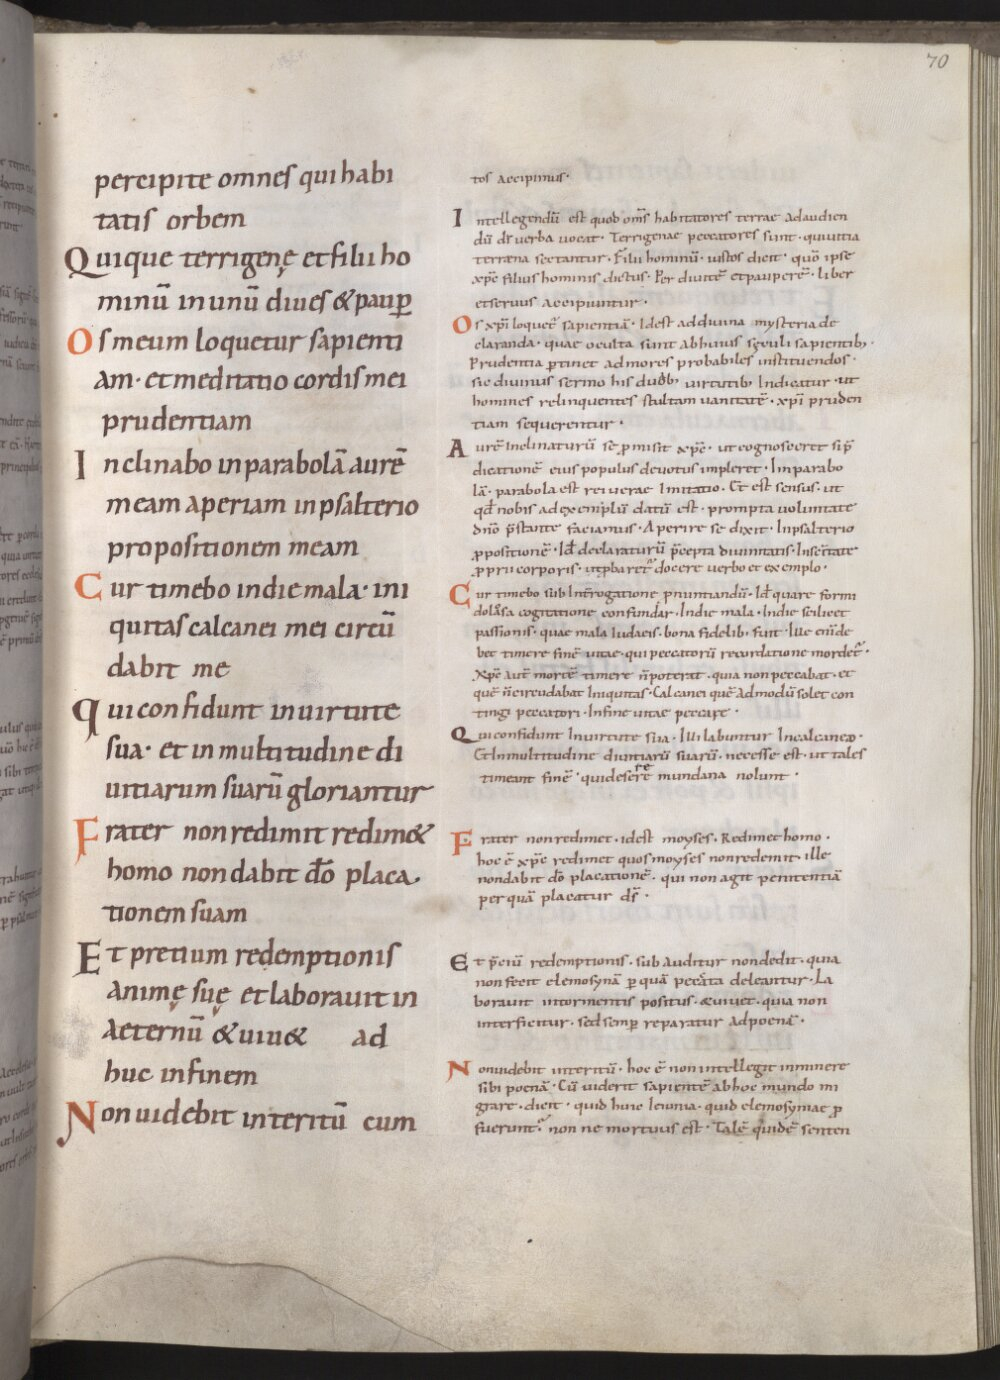 70
percipite omnes qui habi
tatis orbem
Quique terrigenę et filii ho
minū in unū diues & paup̄
Os meum loquetur sapienti
am · et meditatio cordis mei
prudentiam
Inclinabo in parabolā aurē
meam aperiam in psalterio
propositionem meam
Cur timebo in die mala · ini
quitas calcanei mei circū
dabit me
Qui confidunt in uirtute
sua · et in multitudine di
uitiarum suarū gloriantur
Frater non redimit redim&
homo non dabit dō placa
tionem suam
Et pretium redemptionis
animę suę et laborauit in
aeternū & uiu& ad
huc in finem
Non uidebit interitū cum
tos accipimus ·
Intellegendū est quod om̄s habitatores terrae ad audien
dū dn̄i uerba uocat · Terrigenae peccatores sunt · qui uitia
terraena sectantur · Filii hominū · iustos dicit · quō ipse
xp̄c filius hominis dictus · Per diuitē et pauperē · liber
et seruus accipiuntur ·
Os xp̄i loquet̄ sapientiā · Id est ad diuina mysteria de
claranda · quae occulta sunt ab huius sęculi sapientib ·
Prudentia p̄tinet ad mores probabiles instituendos ·
sic diuinus sermo his duob; uirtutib; indicatur · ut
homines relinquentes stultam uanitatē · xp̄i pruden
tiam sequerentur ·
Aurē inclinaturū sē p̄misit xp̄c · ut cognosceret si p̄
dicationē eius populus deuotus impleret · In parabo
lā · parabola est rei uerae imitatio · Et est sensus · ut
qd̄ nobis ad exemplū datū est · prompta uoluntate
dn̄o p̄stante faciamus · Aperire se dixit · In psalterio
p̄positionē · Id̄ declaraturū p̄cepta diuinitatis ·
p̄prii corporis · docere uerbo et exemplo ·
Cur timebo sub intērrogatione p̄nuntiandū · Id̄ quare formi
dolosa cogitatione confundar · In die mala · In die scilicet
passionis · quae mala iudaeis · bona fidelib · fuit · Ille enī de
bet timere finē uitae · qui peccatorū recordatione mordet̄ ·
Xp̄c aut̄ mortē timere n̄ poterat · quia non peccabat · et
quē n̄ circudabat iniquitas · Calcanei quē ad modū solet con
tingi peccatori · In fine uitae peccare ·
Qui confidunt in uirtute sua · Illi labuntur in calcaneo ·
Et in multitudine diuitiarū suarū · necesse est · ut tales
timeant finē · qui deserere mundana nolunt ·
Frater non redimet · id est moyses · Redimet homo ·
hoc ē xp̄c redimet quos moyses non redemit · ille
non dabit dō placationē · qui non agit penitentiā
per quā placatur ds̄ ·
Et p̄ciū redemptionis · sub auditur non dedit · quia
non fecit elemosynā p̄ quā peccāta deleantur · La
borauit in tormentis positus · & uiuet · quia non
interficitur · sed semp̄ reparatur ad poenā ·
Non uidebit interitū · hoc ē non intellegit inminere
sibi poenā · Cū uiderit sapientē ab hoc mundo mi
grare · dicit · quid huic ieiunia · quid elemosynae p̄
fuerunt · non ne mortuus est · Talē quidē senten